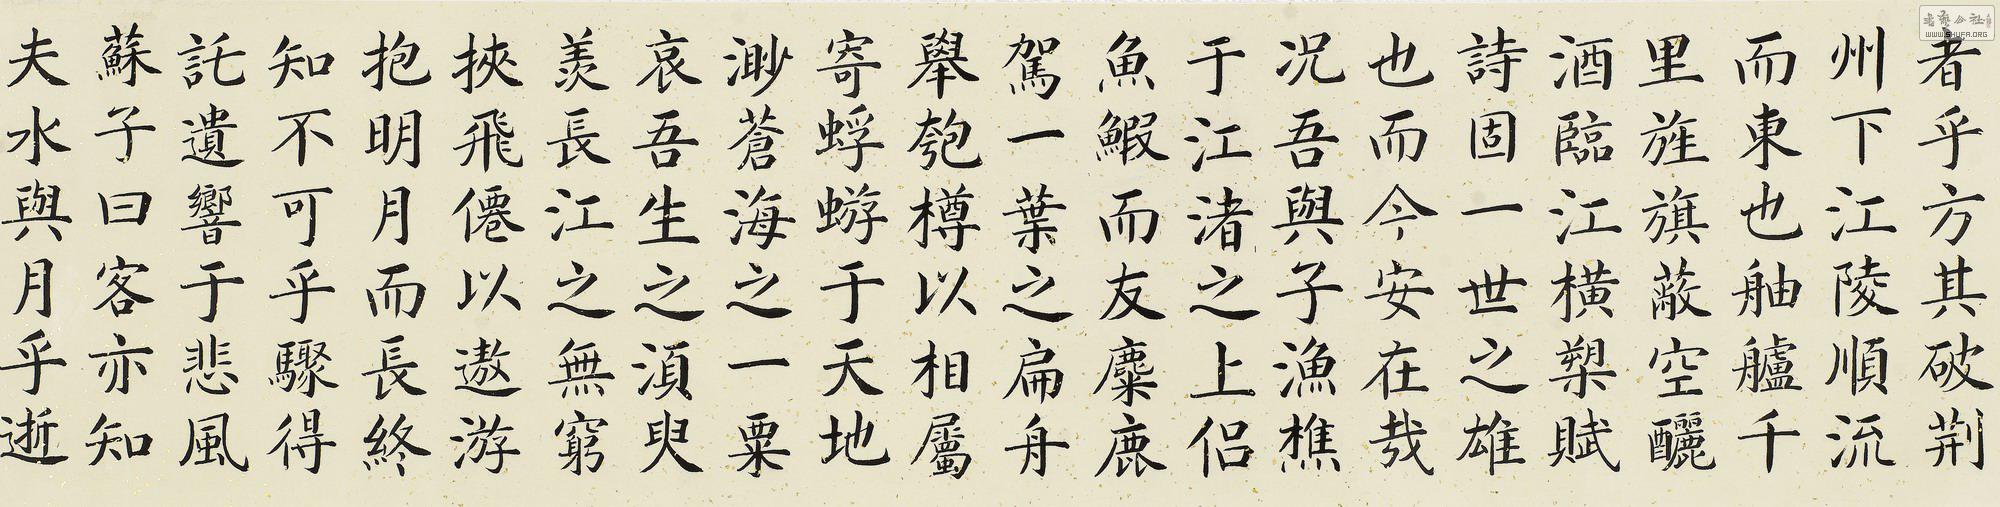 者乎方其破荆
州下江陵順流
而東也舳艫千
里旌旗蔽空釃
酒臨江横槊賦
詩固一世之雄
也而今安在哉
况吾與子漁樵
于江渚之上侣
魚鰕而友麋鹿
駕一葉之扁舟
舉匏樽以相屬
寄蜉蝣于天地
渺蒼海之一粟
哀吾生之湏臾
羨長江之無窮
挾飛僊以遨游
抱明月而長終
知不可乎驟得
託遺響于悲風
蘇子曰客亦知
夫水與月乎逝
书艺公社
WWW.SHUFA.ORG